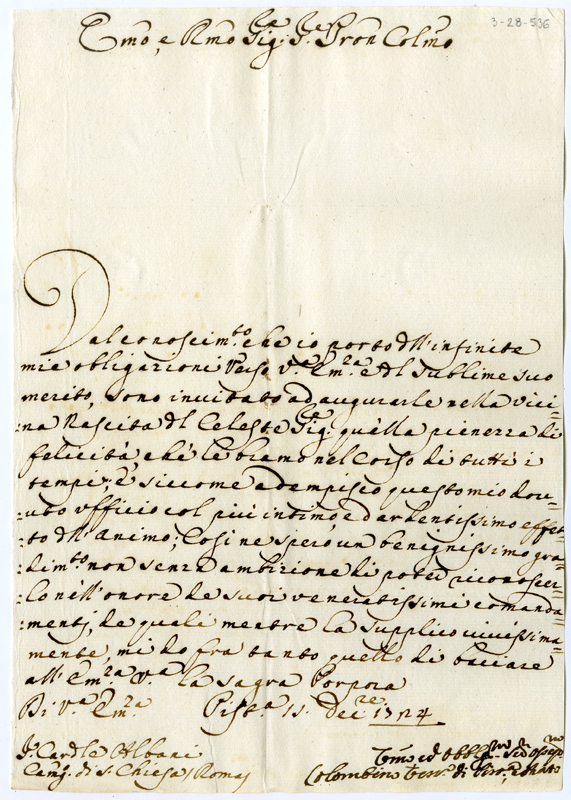 3-28-536
Emo, e Rmo Sig.re Sig.re Pron Colmo
Dal conoscim.to che io porto dll'infinite
mie obligazioni verso V.ra Em.za e dl sublime suo
merito, sono invitato ad augurarle nella vici=
=na Nascita dl Celeste Sig.re quella pienezza di
felicità, ché le bramo nel Corso di tutti i
tempi; è siccome adempisco questo mio dou=
=uto vfficio col più intimo, ed ardentissimo effet=
=to dll'Animo; Così ne spero un benignissimo gra=
=dim.to non senza ambizione di poter riconoscer=
=lo nell'onore de suoi veneratissimi comanda=
=menti, de quali mentre la supplico viuissima=
mente, mi do fra tanto quello di baciare
all'Em.za V.ra la sagra Porpora
Di V.ra Em.za Pist.a 15. Dec.re 1724
Sr Cardle Albani
Cam.go di S. Chiesa / Roma
Colombino